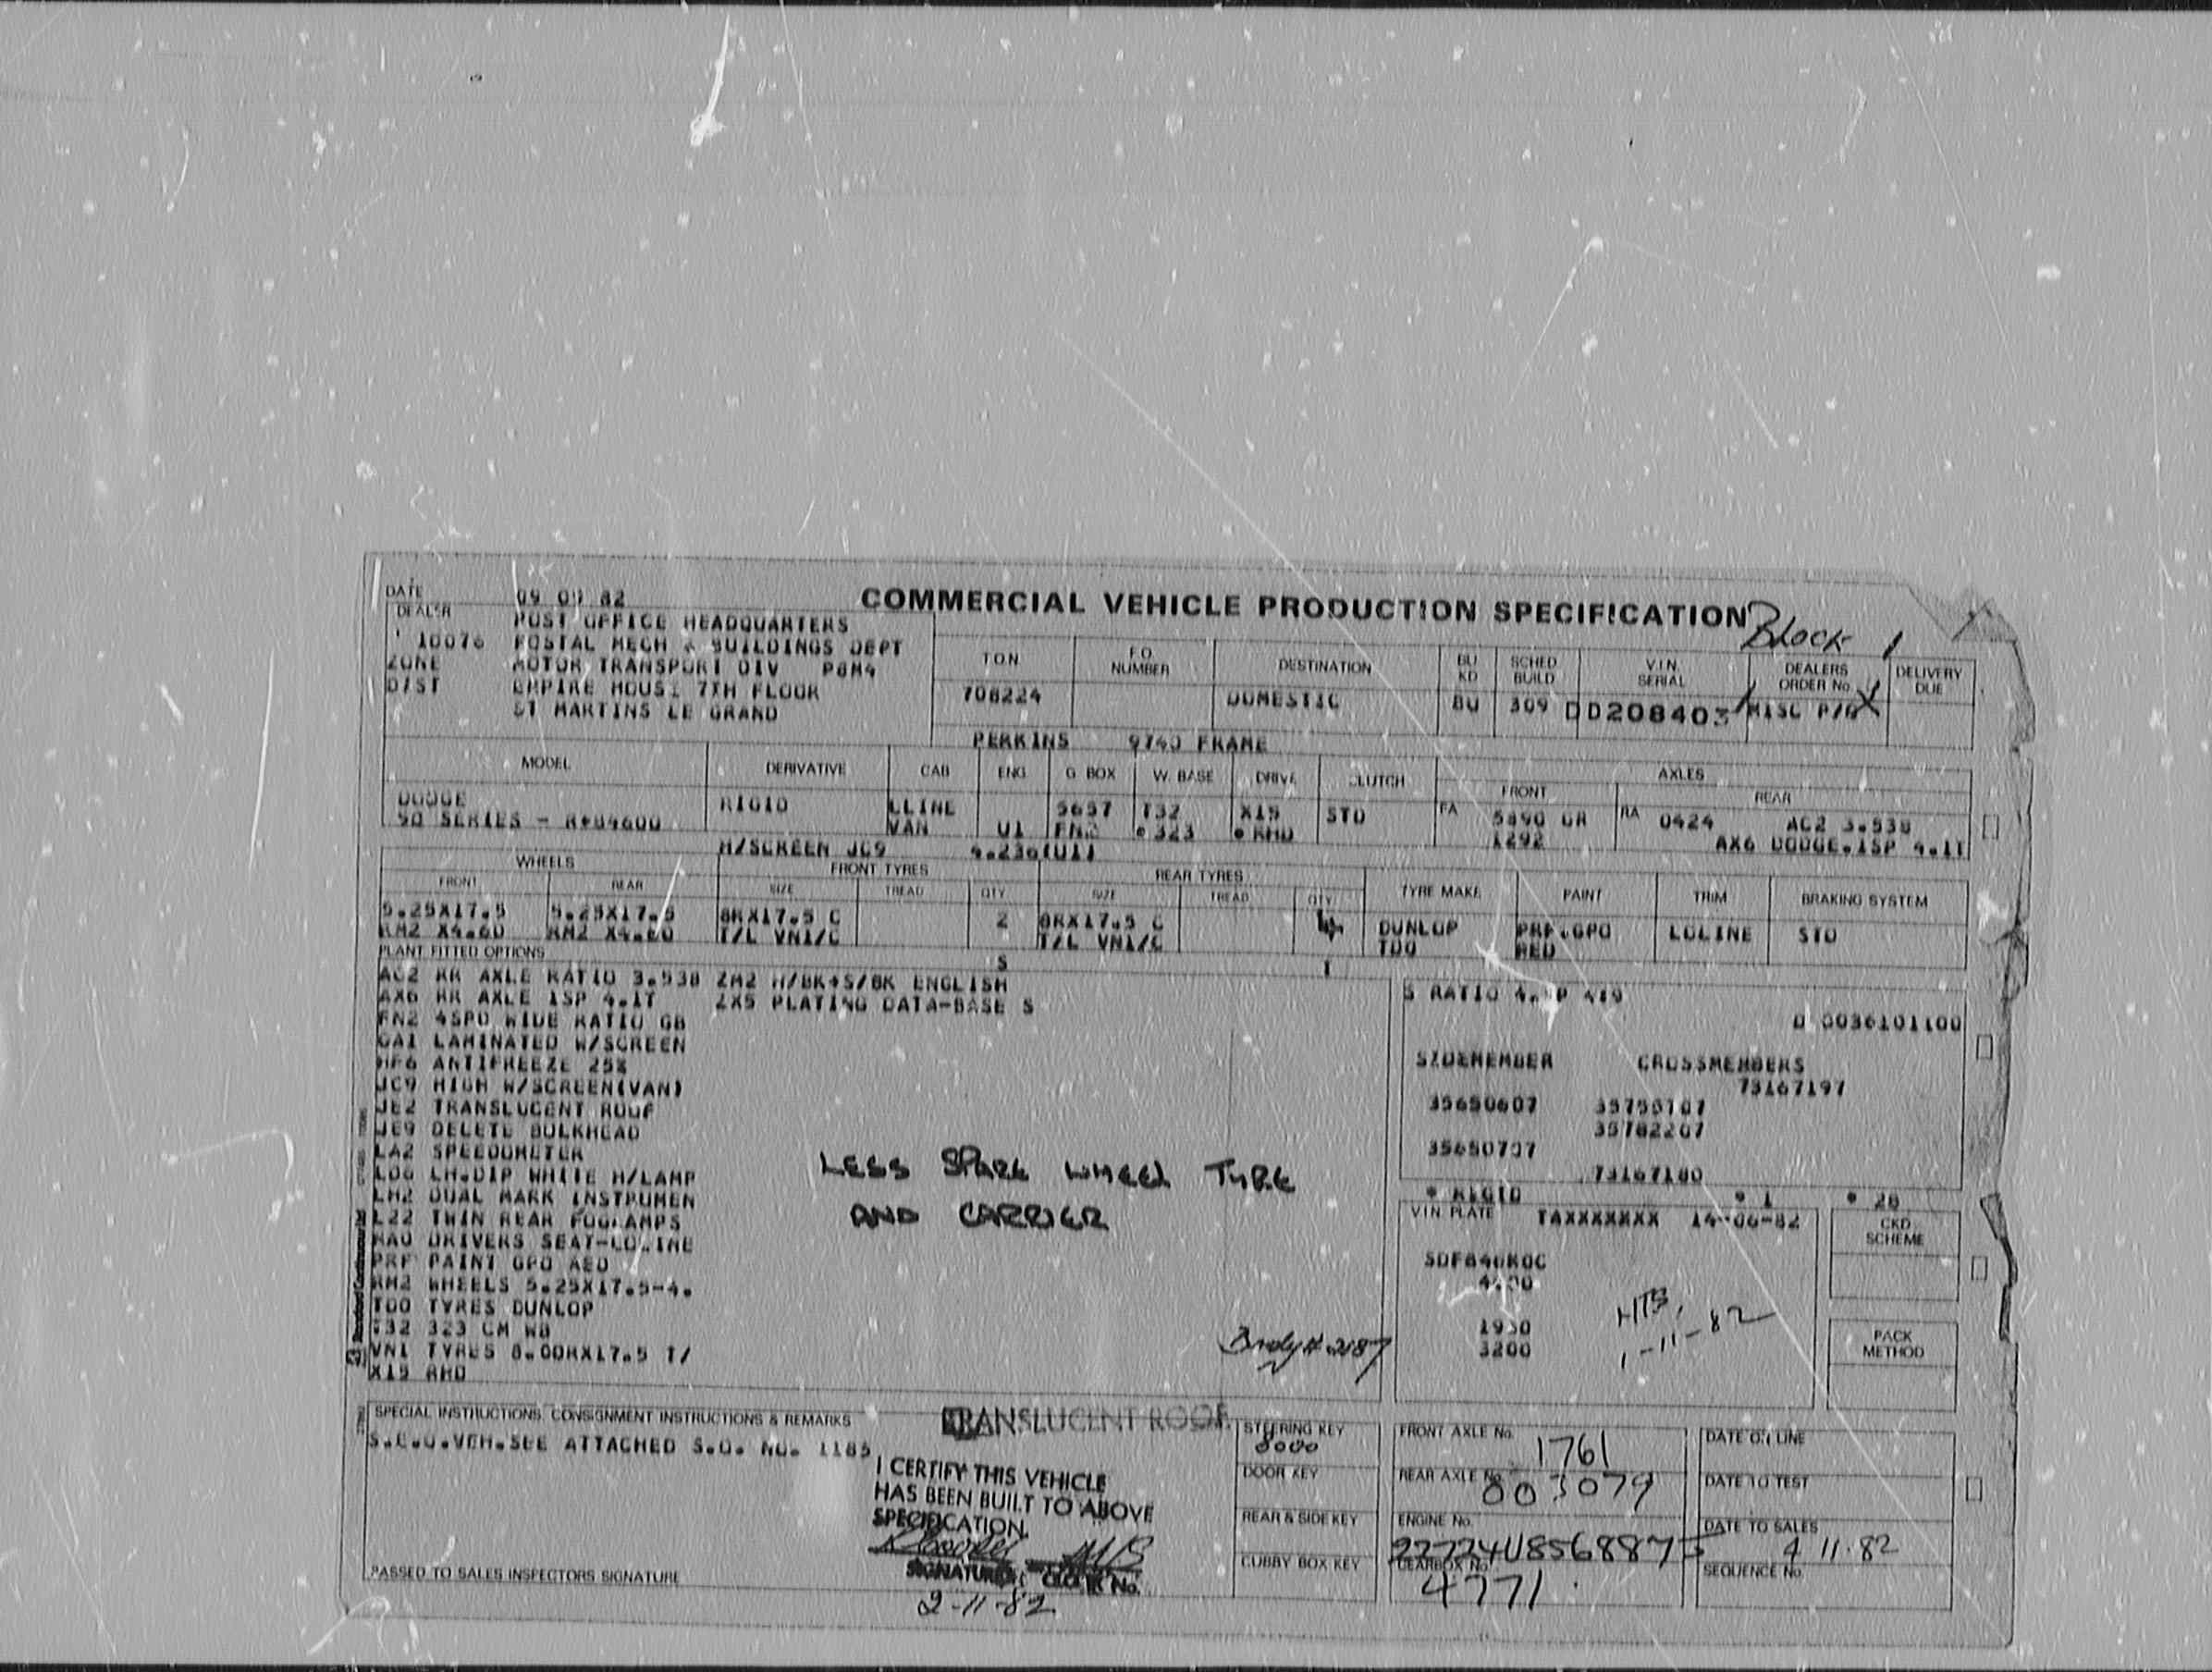 DATE 09 09 82
COMMERCIAL VEHICLE PRODUCTION SPECIFICATION
Block 1
DEALER POST OFFICE HEADQUARTERS
10076 POSTAL MECH & BUILDINGS DEPT
ZONE MOTOR TRANSPORT DIV PBM4
DIST EMPIRE HOUSE 7TH FLOOR
ST MARTINS LE GRAND
T.O.N F.O. NUMBER DESTINATION BU KD SCHED BUILD V.I.N. SERIAL DEALERS ORDER No. DELIVERY DUE
708224 DOMESTIC BU 309 DD208403 MISC P/O
PERKINS 9740 FRAME
MODEL DERIVATIVE CAB ENG G BOX W. BASE DRIVE CLUTCH AXLES
FRONT REAR
DODGE RIGID LLINE 5657 T32 X15 STD FA 5890 OR RA 0424 AC2 3.538
50 SERIES - VAN U1 FN2 * 323 * RHD 1292 AX6 DODGE.1SP 4.1T
H/SCREEN JC9 4.236(U1)
WHEELS FRONT TYRES REAR TYRES
FRONT REAR SIZE TREAD QTY SIZE TREAD QTY TYRE MAKE PAINT TRIM BRAKING SYSTEM
5.25X17.5 5.25X17.5 8RX17.5 C 2 8RX17.5 C 4 DUNLOP PRF.GPO LOLINE STD
RM2 X4.60 RM2 X4.60 T/L VN1/C T/L VN1/C TDO RED
PLANT FITTED OPTIONS S 1
AC2 RR AXLE RATIO 3.538 ZM2 H/BK+S/BK ENGLISH
AX6 RR AXLE 1SP 4.1T ZX5 PLATING DATA-BASE S
FN2 4SPD WIDE RATIO GB
GA1 LAMINATED W/SCREEN
HF6 ANTIFREEZE 25%
JC9 HIGH W/SCREEN(VAN)
JE2 TRANSLUCENT ROOF
JE9 DELETE BULKHEAD
LA2 SPEEDOMETER
LD6 LH.DIP WHITE H/LAMP
LM2 DUAL MARK INSTRUMEN
L22 TWIN REAR FOGLAMPS
MAO DRIVERS SEAT-LOLINE
PRF PAINT GPO RED
RM2 WHEELS 5.25X17.5-4.
TDO TYRES DUNLOP
T32 323 CM WB
VN1 TYRES 8.00RX17.5 T/
X15 RHD
LESS SPARE WHEEL TYRE
AND CARRIER
Body # 2187
S RATIO 419
0036101100
SIDEMEMBER CROSSMEMBERS
73167197
35650607 35750707
35782207
35650707
73167180
* RIGID * 1 * 28
VIN PLATE TAXXXXXXX 14-06-82
1950
3200
1-11-82
CKD SCHEME
PACK METHOD
SPECIAL INSTRUCTIONS, CONSIGNMENT INSTRUCTIONS & REMARKS
S.E.O.VEH.SEE ATTACHED S.O. NO. 1185
TRANSLUCENT ROOF
I CERTIFY THIS VEHICLE
HAS BEEN BUILT TO ABOVE
SPECIFICATION.
SIGNATURE CLOCK No.
2-11-82
PASSED TO SALES INSPECTORS SIGNATURE
STEERING KEY 0000
DOOR KEY
REAR & SIDE KEY
CUBBY BOX KEY
FRONT AXLE No. 1761
REAR AXLE No. 003079
ENGINE No.
22724U856887S
GEARBOX No.
4771
DATE ON LINE
DATE TO TEST
DATE TO SALES
4 11.82
SEQUENCE No.